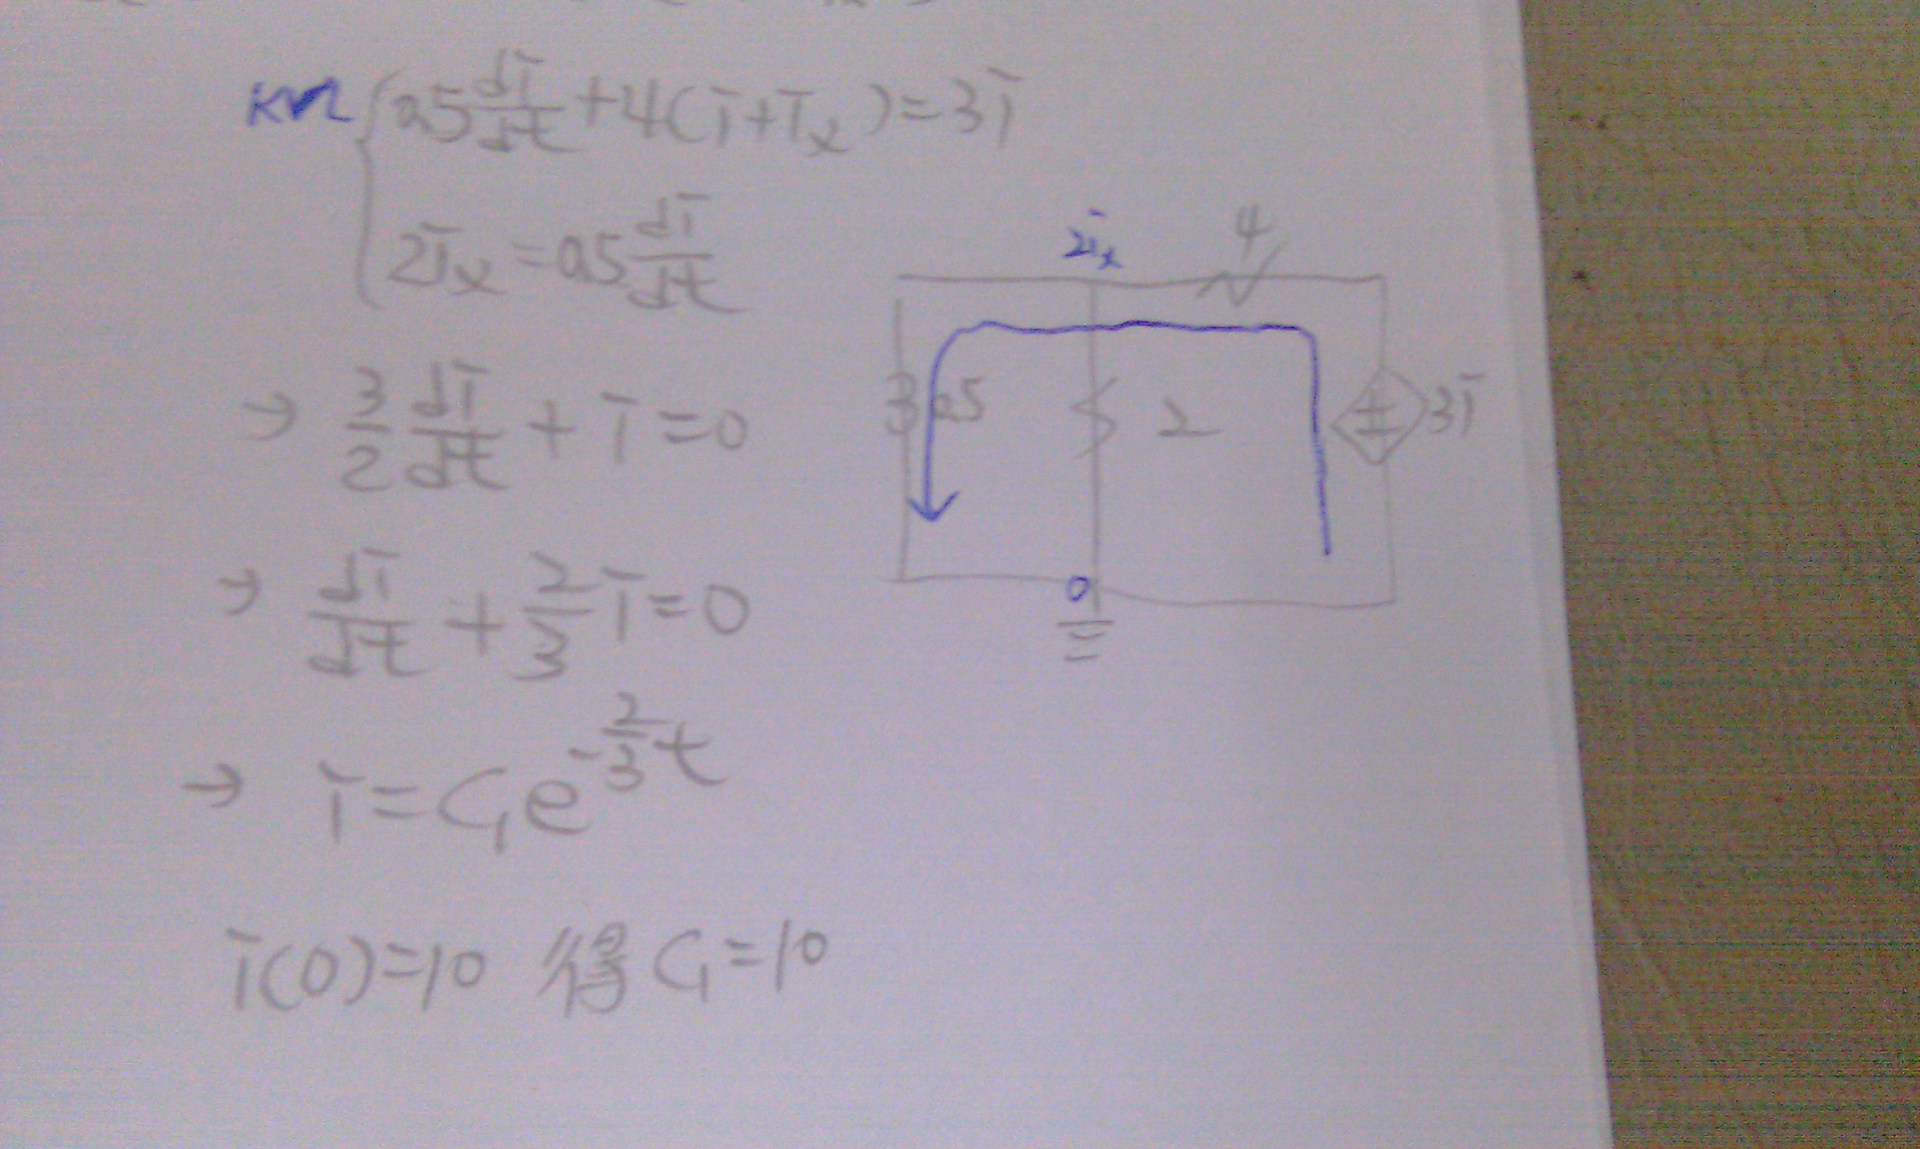 KVL { 0.5 di/dt + 4(i+ix) = 3i
2ix = 0.5 di/dt
→ 3/2 di/dt + i = 0
→ di/dt + 2/3 i = 0
→ i = C₁e^(-2/3 t)
i(0)=10 得 C₁=10
2ix
4
0.5
2
±
3i
0